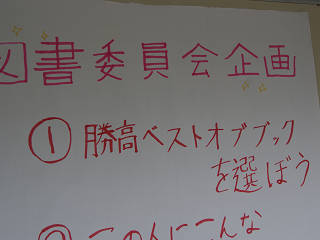 図書委員会企画
① 勝高ベストオブブック
を選ぼう
② この人にこんな